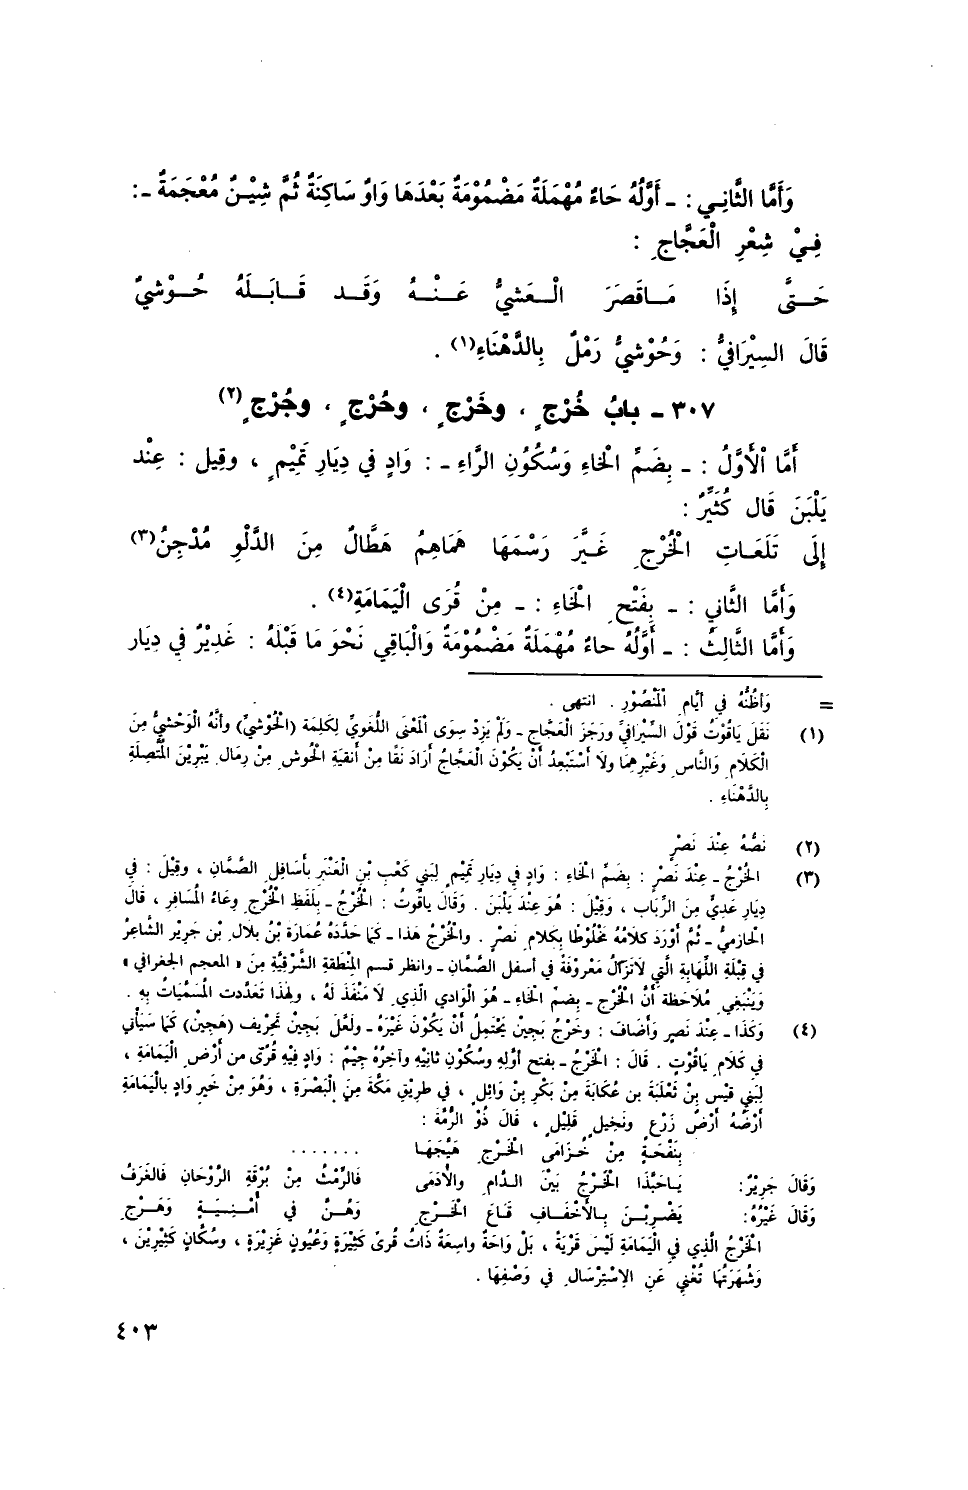 وَأَمَّا الثَّانِي : ـ أَوَّلُهُ حَاءٌ مُهْمَلَةٌ مَضْمُوْمَةٌ بَعْدَهَا وَاوٌ سَاكِنَةٌ ثُمَّ شِيْنٌ مُعْجَمَةٌ ـ :
فِيْ شِعْرِ الْعَجَّاجِ :
حَتَّى إِذَا مَاقَصَرَ الْعَشيُّ عَنْهُ وَقَد قَابَلَهُ حُوْشيٌّ
قَالَ السِيْرَافيُّ : وَحُوْشيٌّ رَمْلٌ بِالدَّهْنَاءِ(١) .
٣٠٧ ـ بابُ خُرْجٍ ، وخَرْجٍ ، وحُرْجٍ ، وجُرْجٍ(٢)
أَمَّا اْلأَوَّلُ : ـ بِضَمِّ الْخاءِ وَسُكُوُنِ الرَّاءِ ـ : وَادٍ في دِيَارِ تَمِيْمٍ ، وقِيل : عِنْد
يَلْبَنَ قَال كُثَيِّرٌ :
إِلَى تَلَعَاتِ الْخُرْجِ غَيَّرَ رَسْمَهَا هَمَاهِمُ هَطَّالٌ مِنَ الدَّلْوِ مُدْجِنُ(٣)
وَأَمَّا الثَّاني : ـ بِفَتْحِ الْخَاءِ : ـ مِنْ قُرَى الْيَمَامَةِ(٤) .
وَأَمَّا الثَّالِثُ : ـ أَوَّلُهُ حاءٌ مُهْمَلةٌ مَضْمُوْمَةٌ وَالْبَاقِي نَحْوَ مَا قَبْلَهُ : غَدِيْرٌ في دِيَار
= وَأَظُنُّهُ في أَيَّامِ الْمَنْصُوْرِ . انتهى .
(١) نَقَلَ يَاقُوْتُ قَوْلَ السِّيْرَافيِّ وَرَجَزَ الْعَجَّاجِ ـ وَلَمْ يَزِدْ سِوَى الْمَعْنَى اللُّغَوِيِّ لِكَلِمَةِ (الْحُوْشيِّ) وأَنَّهُ الْوَحْشيُّ مِنَ
الْكَلَامِ وَالنَّاسِ وَغَيْرِهِمَا ولاَ أَسْتَبْعِدُ أَنْ يَكُوْنَ الْعَجَّاجُ أَرَادَ نَقًا مِنْ أَنقيَةِ الْحُوشِ مِنْ رِمَالِ يَبْرِيْنَ الْمُتَّصِلَةِ
بِالدَّهْنَاءِ .
(٢) نَصُّهُ عِنْدَ نَصْرٍ
(٣) الْخُرْجُ ـ عِنْدَ نَصْرٍ : بِضَمِّ الْخَاءِ : وَادٍ في دِيَارِ تَمِيْمٍ لِبَني كَعْبِ بْنِ الْعَنْبَرِ بأَسَافِلِ الصَّمَّانِ ، وقِيْلَ : في
دِيَارِ عَدِيٍّ مِنَ الرِّبَابِ ، وَقِيْلَ : هُوَ عِنْدَ يَلْبَنَ . وَقَالَ ياقُوتُ : الْخُرْجُ ـ بِلَفَظِ الْخُرْجِ وِعَاءُ الْمُسَافِرِ ، قَالَ
الحازميُّ ـ ثُمَّ أَوْرَدَ كلاَمُهُ مَخْلُوْطًا بِكَلامِ نَصْرٍ . والْخُرْجُ هَذا ـ كَمَا حَدَّدَهُ عُمَارَةُ بْنُ بِلاَلِ بْنِ جَرِيْرٍ الشَّاعِرُ
في قِبْلَةِ اللِّهَابةِ الَّتِي لاَتَزَالُ مَعْرُوفَةً في أَسفلِ الصَّمَّانِ ـ وانظر قسم الْمِنْطَقةِ الشَّرْقيَّةِ مِنَ « المعجم الجغرافي »
وَيَنْبَغِي مُلاَحَظَةُ أَنَّ الْخُرْجَ ـ بِضمِّ الْخاءِ ـ هُوَ الْوَادي الَّذِي لاَ مَنْفَذَ لَهُ ، وَلِهذَا تَعَدَّدت الْمُسَمَّيَاتُ بِهِ .
(٤) وَكَذَا ـ عِنْدَ نَصرٍ وَأَضَافَ : وخَرْجُ بَجِيْنَ يَحْتَمِلُ أَنْ يَكُوْنَ غَيْرَهُ ـ ولَعَلَّ بَجِيْنَ تَحْرِيف (هَجِين) كَمَا سَيَأْتي
في كَلَامِ يَاقُوْتٍ . قَالَ : الْخَرْجُ ـ بِفتحِ أَوَّلِهِ وسُكُوْنِ ثانِيْهِ وآخِرُهُ جِيْمٌ : وَادٍ فِيْهِ قُرًى من أَرْضِ الْيَمَامَةِ ،
لِبَني قَيْسِ بْنِ ثَعْلَبَةَ بن عُكَابَةَ مِنْ بَكْرِ بِنْ وَائِلٍ ، في طريقِ مَكَّةَ مِنَ الْبَصْرَةِ ، وَهُوَ مِنْ خَيرِ وَادٍ بالْيَمَامَةِ
أَرْضُهُ أَرْضُ زَرْعٍ ونَخِيلٍ قَلِيْلٍ ، قَالَ ذُوْ الرُّمَّة :
بِنَفْحَةٍ مِنْ خُزَامَى الْخَرْجِ هَيَّجَهَا . . . . . . .
وَقَالَ جَرِيْرٌ: يَاحَبَّذَا الْخَرْجُ بَيْنَ الدَّامِ والأُدَمَى فَالرِّمْثُ مِنْ بُرْقَةِ الرَّوْحَانِ فَالغَرَفُ
وَقَالَ غَيْرُهُ: يَضْرِبْنَ بِالأَخْفَافِ قَاعَ الْخَرْجِ وَهُنَّ في أُمْنِيَةٍ وَهَرْجِ
الْخَرْجُ الَّذِي في الْيَمَامَةِ لَيْسَ قَرْيَةً ، بَلْ وَاحَةٌ واسِعَةٌ ذَاتُ قُرىً كَثِيْرَةٍ وَعُيُونٍ غَزِيْرَةٍ ، وسُكَّانٍ كَثِيْرِيْنَ ،
وَشُهْرَتُهَا تُغْنِي عَنِ الاِسْتِرْسَالِ في وَصْفِهَا .
٤٠٣